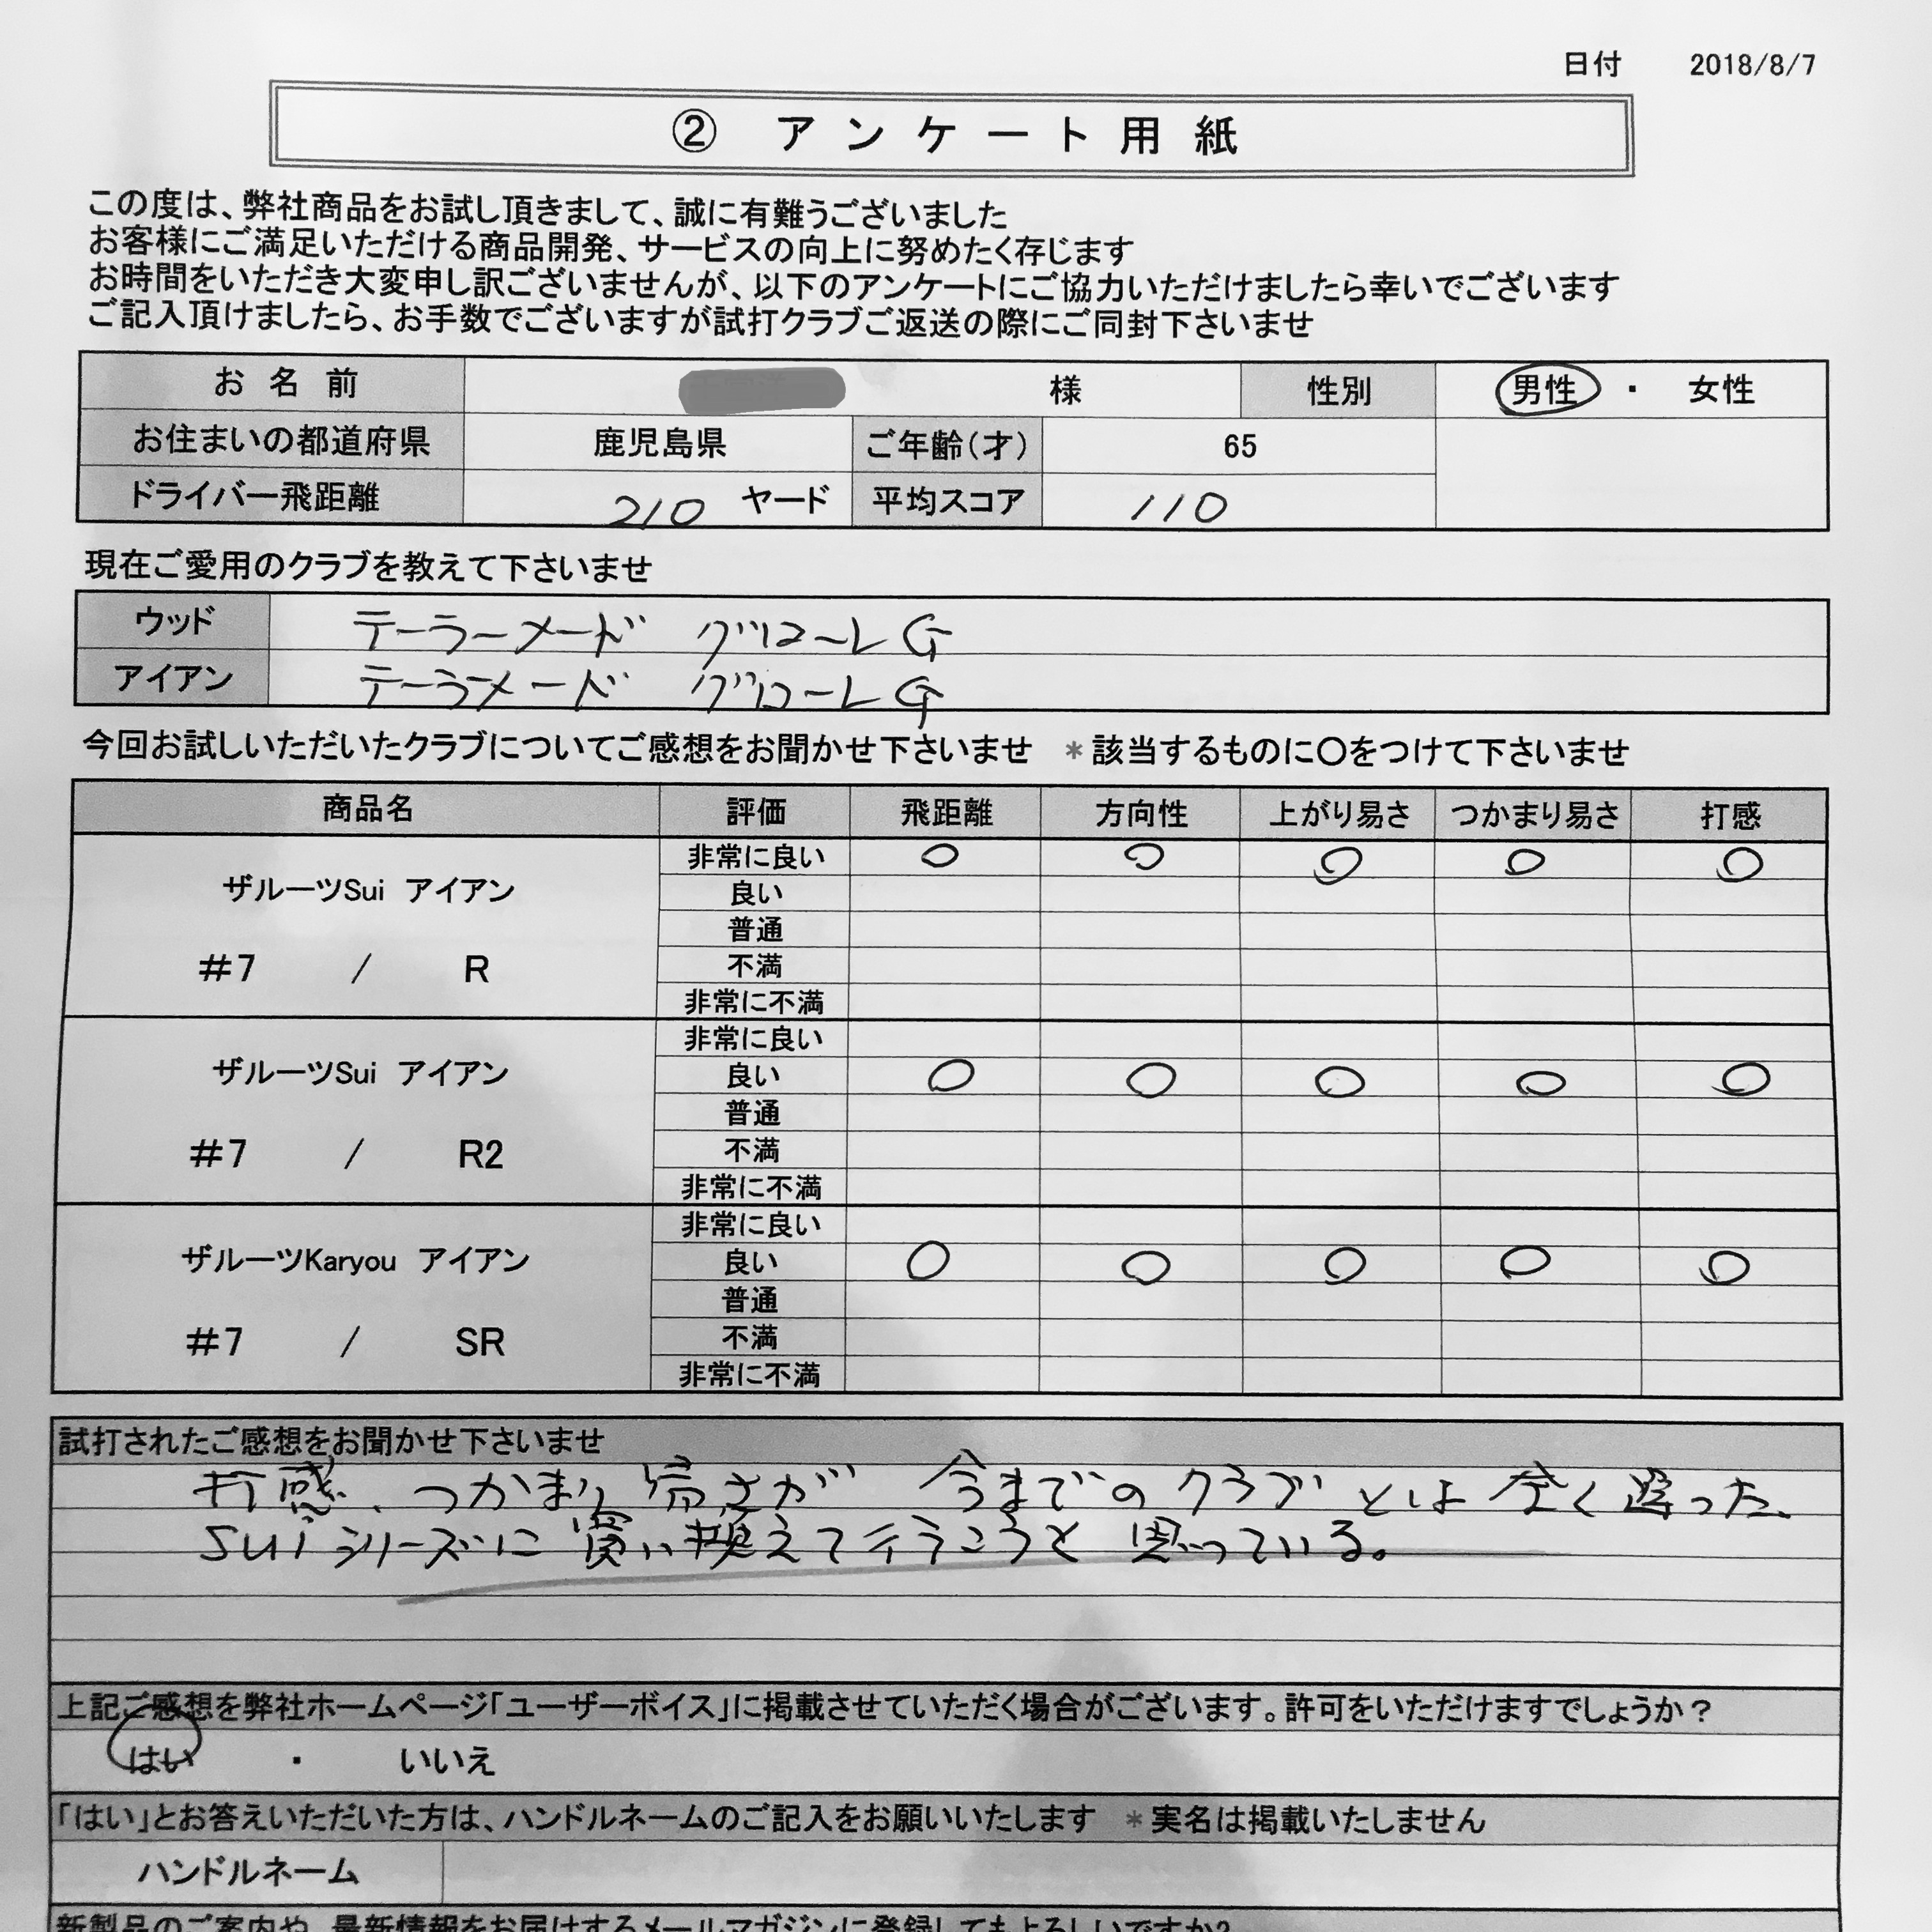 日付 2018/8/7
② アンケート用紙
この度は、弊社商品をお試し頂きまして、誠に有難うございました
お客様にご満足いただける商品開発、サービスの向上に努めたく存じます
お時間をいただき大変申し訳ございませんが、以下のアンケートにご協力いただけましたら幸いでございます
ご記入頂けましたら、お手数でございますが試打クラブご返送の際にご同封下さいませ
お名前 様 性別 男性 ・ 女性
お住まいの都道府県 鹿児島県 ご年齢(才) 65
ドライバー飛距離 210 ヤード 平均スコア 110
現在ご愛用のクラブを教えて下さいませ
ウッド テーラーメード グローレG
アイアン テーラメード グローレG
今回お試しいただいたクラブについてご感想をお聞かせ下さいませ *該当するものに〇をつけて下さいませ
商品名 評価 飛距離 方向性 上がり易さ つかまり易さ 打感
ザルーツSui アイアン
#7 / R
非常に良い ○ ○ ○ ○ ○
良い
普通
不満
非常に不満
ザルーツSui アイアン
#7 / R2
非常に良い
良い ○ ○ ○ ○ ○
普通
不満
非常に不満
ザルーツKaryou アイアン
#7 / SR
非常に良い
良い ○ ○ ○ ○ ○
普通
不満
非常に不満
試打されたご感想をお聞かせ下さいませ
打感、つかまり易さが 今までのクラブとは全く違った、
suiシリーズに買い換えて行こうと思っている。
上記ご感想を弊社ホームページ「ユーザーボイス」に掲載させていただく場合がございます。許可をいただけますでしょうか？
はい ・ いいえ
「はい」とお答えいただいた方は、ハンドルネームのご記入をお願いいたします *実名は掲載いたしません
ハンドルネーム
新製品のご案内や、最新情報をお届けするメールマガジンに登録してもよろしいですか?